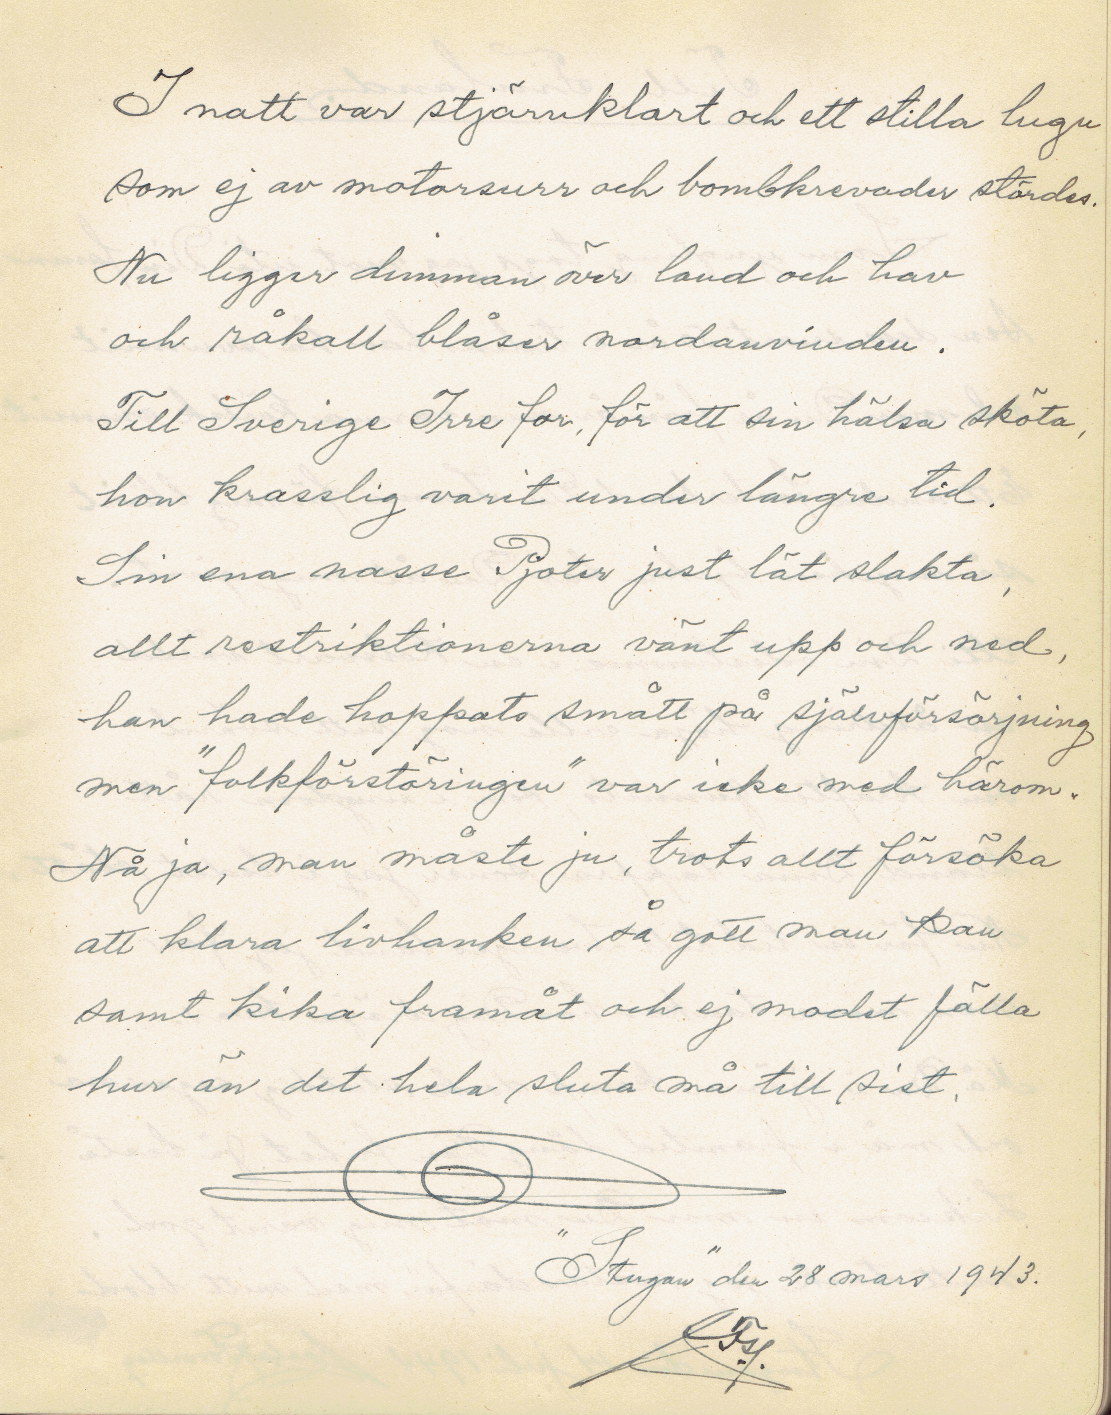 I natt var stjärnklart och ett stilla lugn
som ej av motorsurr och bombkrevader stördes.
Nu ligger dimman över land och hav
och råkall blåser nordanvinden.
Till Sverige Irre for, för att sin hälsa sköta,
hon krasslig varit under längre tid.
Sin ena nasse Pjoter just lät slakta,
allt restriktionerna vänt upp och ned,
han hade hoppats smått på självförsörjning
men "folkförstöringen" var icke med härom.
Nå ja, man måste ju, trots allt försöka
att klara livhanken så gott man kan
samt kika framåt och ej modet fälla
hur än det hela sluta må till sist.
"Stugan" den 28 mars 1943.